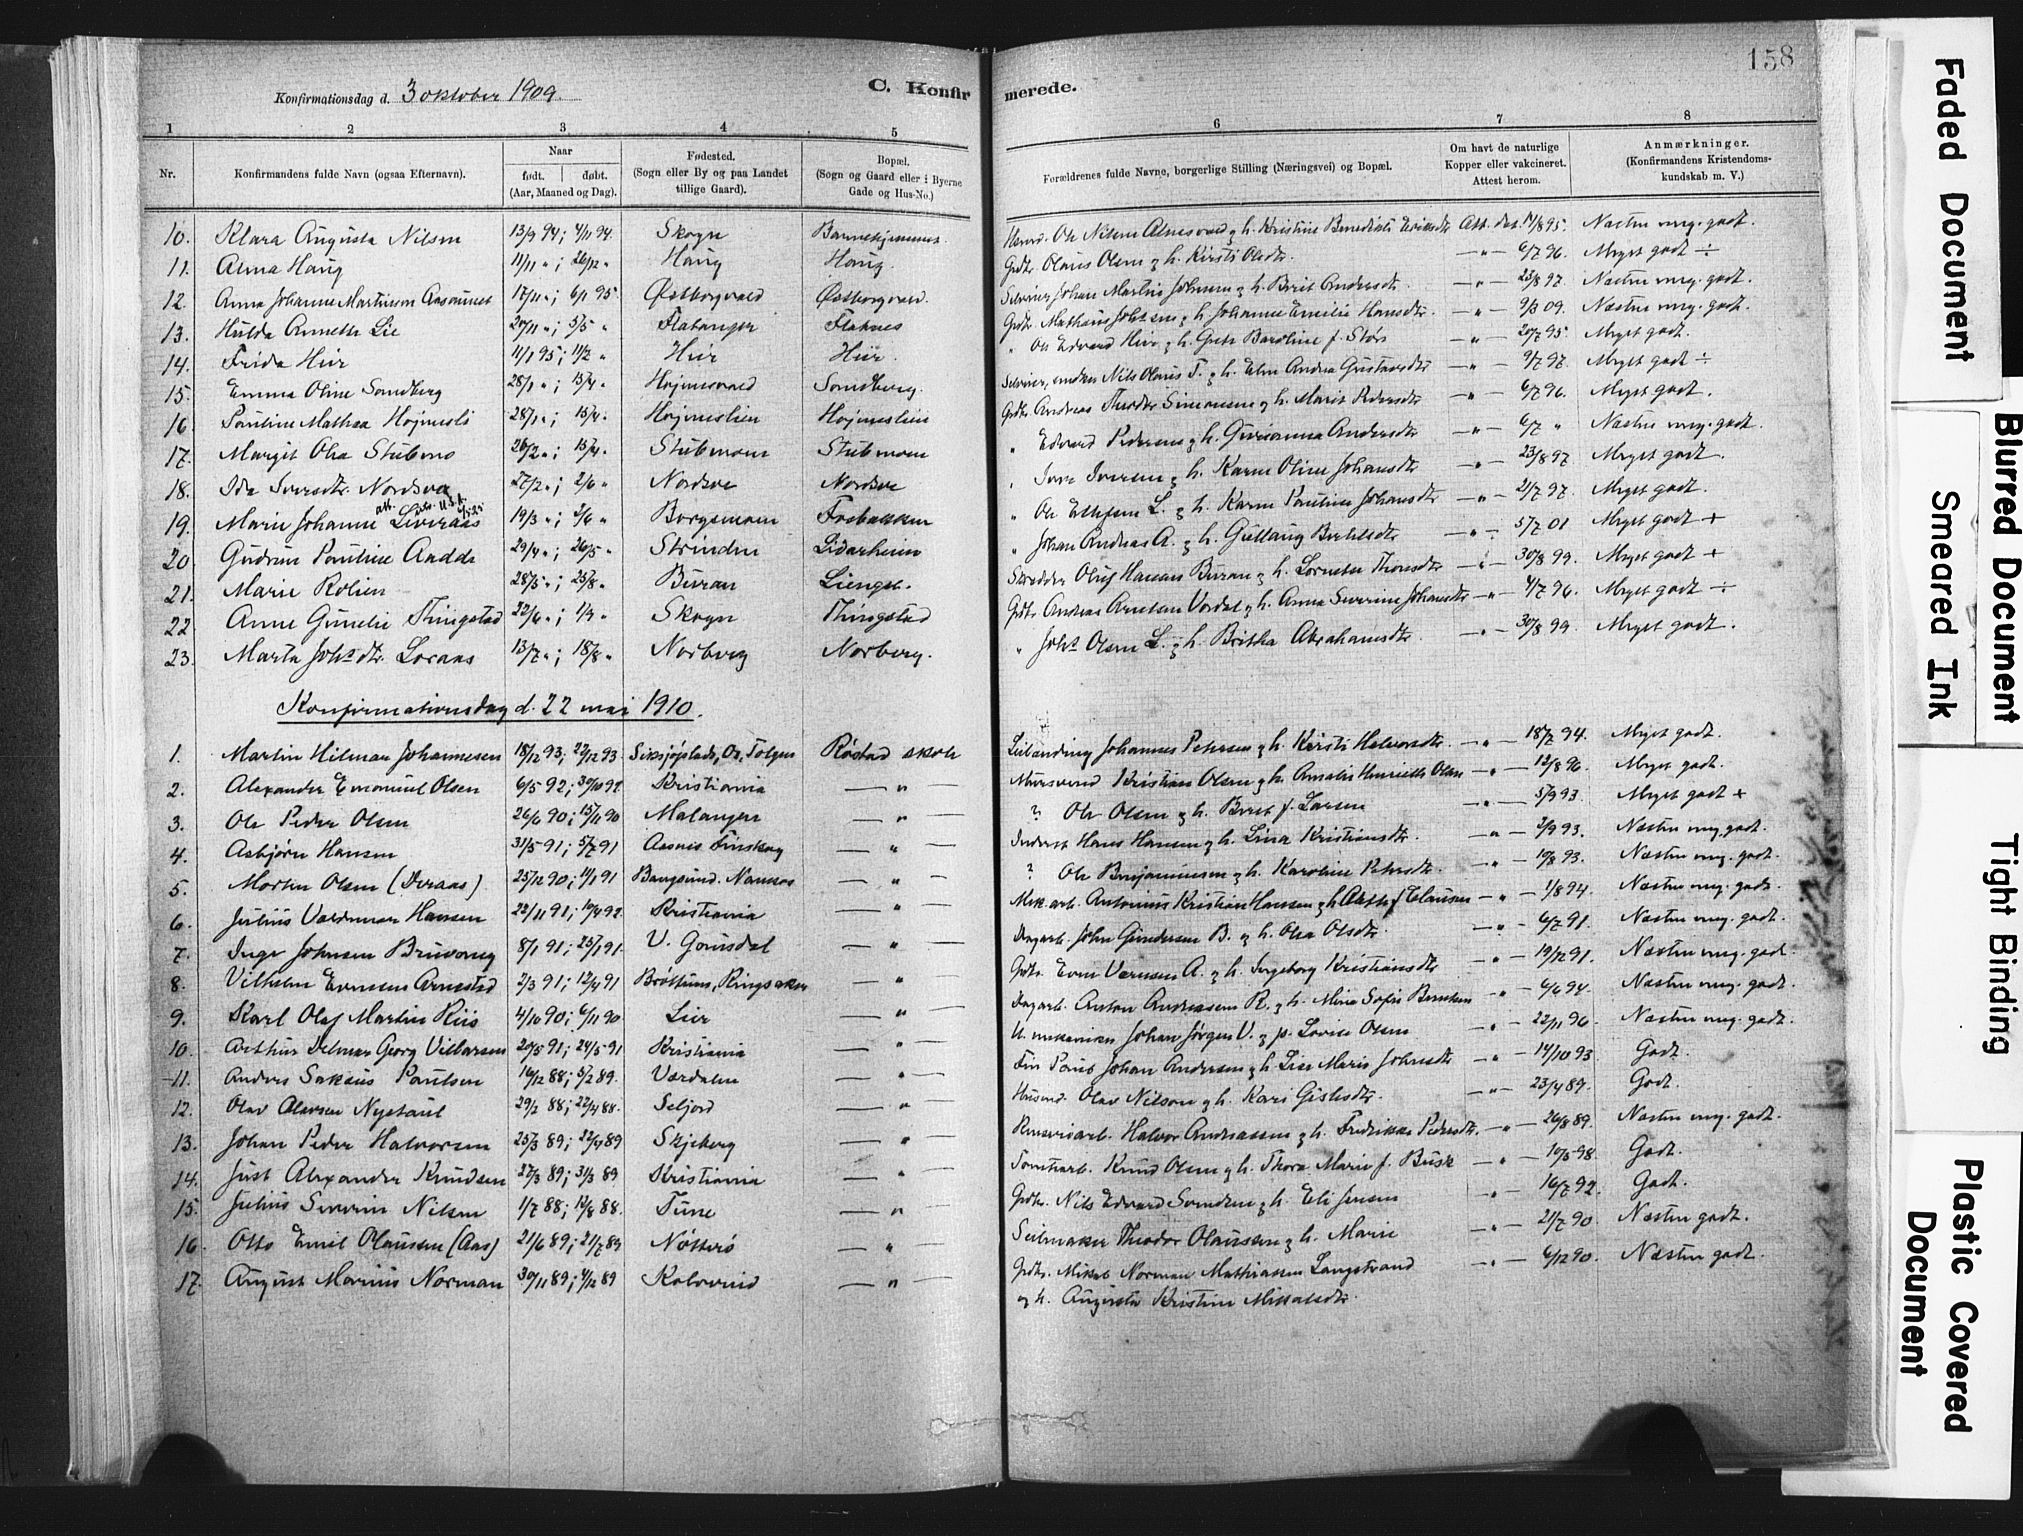 158
Konfirmationsdag d. 3 oktober 1909.
C. Konfirmerede.
1 2 3 4 5 6 7 8
Nr.
Konfirmandens fulde Navn (ogsaa Efternavn).
Naar
født. døbt.
(Aar, Maaned og Dag).
Fødested.
(Sogn eller By og paa Landet
tillige Gaard).
Bopæl.
(Sogn og Gaard eller i Byerne
Gade og Hus-No.)
Forældrenes fulde Navne, borgerlige Stilling (Næringsvei) og Bopæl.
Om havt de naturlige
Kopper eller vakcineret.
Attest herom.
Anmærkninger.
(Konfirmandens Kristendoms-
kundskab m. V.)
10. Klara Augusta Nilsen 13/9 94; 4/11 94. Skogn Barnehjemmet Ole Nilsen h. Kristine Att. Næsten meg. godt.
11. Anna Haug 11/11 "; 26/12 " Haug Haug. Grdbr. Olaus Olsen & h. Kirsti Olsdtr. — " — 6/7 96. Meget godt ÷
12. Anna Johanne Martinsen 17/11 "; 6/1 95. Østborgvald Østborgvald. Selveier Johan Martin Johnsen & h. Berit Andersdtr. — " — 23/8 97. Næsten meg. godt.
13. Hulda Annette Lie 20/11 "; 5/5 " Flatanger Flaknes Grdbr. h. Johanne Emilie Hansdtr. — " — 9/3 09. Næsten meg. godt.
14. Frida Heir 11/1 95; 11/2 " Heir Heir. " Ole Edvard Heir & h. Grete Baroline f. Stör — " — 20/7 95. Meget godt.
15. Emma Oline Sandberg 28/1 "; 15/4 " Sandberg. Selveier, Nils Olaus T. & h. Elen Andrea Gustavsdtr — " — 9/7 97. Meget godt ÷
16. Pauline Mathea Højmesli 28/1 "; 15/4 " Højmeslien Højmeslien Grdbr. Andreas Theodor Simonsen & h. Marit Pedersdtr — " — 6/7 96. Meget godt.
17. Margit Olea Stubmo 26/2 "; 15/4 " Stubmoen Stubmoen " Edvard Pedersen & h. Gurianna Andersdtr — " — 6/7 " Næsten meg. godt.
18. Ida Iversdtr. Nordsve 27/2 "; 2/6 " Nordsve Nordsve " Iver Iversen & h. Karen Oline Johansdtr " — 23/8 97 Meget godt.
19. Marie Johanne U.S.A. 19/3 "; 2/6 " Borgsmoen " Ole L. & h. Karen Pauline Johansdtr — " — 21/7 97. Meget godt.
20 Gudrun Pauline Aadde 29/4 "; 26/5 " Strinden Lidarheim " Johan Andreas A. & h. Gullaug — " — 5/7 01 Meget godt +
21. Marie Rolien 28/5 "; 25/8 " Buran Skrædder Oluf Hansen Buran & h. 30/8 99. Meget godt +
22 Anne Gunelie Thingstad 22/6 "; 1/9 " Skogn Thingstad Grdbr. Andreas Arntsen Vordal & h. Anna Severine Johansdtr — " — 4/7 96. Meget godt ÷
23. Marta Johsdtr. Loraas 13/7 "; 18/8 " Norberg Norberg. " Johs Olsen L. & h. Britha Abrahamsdtr. — " — 30/8 99. Meget godt.
Konfirmationsdag d. 22 mai 1910.
1. Martin Hilmar Johannesen 18/12 93; 22/12 93 Os, Tolgen Røstad skole Leilending Johannes Petersen & h. Kirsti Halvorsdtr. — " — 18/7 94. Meget godt.
2. Alexander Emanuel Olsen 6/5 92; 30/10 92 Kristiania — " — Murersvend Kristian Olsen & h. Amalie Henriette Olsen — " — 12/8 96. Meget godt.
3. Ole Peder Olsen 26/6 90; 15/11 90 Malangen — " — ? Ole Olsen & h. Beret f. Larsen — " — 5/9 93. Meget godt +
4. Asbjørn Hansen 31/5 91; 5/7 91 Aasnes Finskog — " — Inderst Hans Hansen & h. Lina Kristiansdtr. — " — 2/9 93. Næsten meg. godt.
5. Morten Olsen (Duraas) 25/12 90; 11/1 91 Bangsund. Namsos — " — ? Ole Benjaminsen & h. Karoline Petersdtr. — " — 10/8 93. Næsten meg. godt.
6. Julius Valdemar Hansen 22/11 91; 10/4 92. Kristiania — " — Mek. arb. Antonius Kristian Hansen & h. f. Clausen — " — 1/8 94. Næsten meg. godt.
7. Inge Johnsen Bruvang 8/1 91; 25/1 91. V. Gausdal — " — Dagarb. John Gundersen B. & h. Olea Olsdtr. — " — 6/7 91. Næsten meg. godt.
8. Vilhelm Evensen Arnestad 2/3 91; 12/4 91 Brøttum, Ringsaker — " — Grdbr. Even A. & h. Ingeborg Kristiansdtr " — 19/12 91. Næsten meg. godt.
9. Karl Olaf Martin Riis 4/10 90; 6/11 90 Lier — " — Dagarb. Anton Andreassen R. & h. Mina Sofie Berntsen " — 6/6 94. Næsten meg. godt.
10. Arthur Georg Villarsen 20/5 91; 24/5 91 Kristiania — " — U. mekaniker Johan Jörgen V. & p. Lovise Olsen " — 22/11 96. Næsten meg. godt.
11. Anders Sakeus Paulsen 16/12 88; 5/2 89. Værdalen — " — Johan Andersen & h. Lise Marie Johnsdtr " — 14/10 93. Godt.
12. Olav Olavsen Nystaul 29/2 88; 22/4 88. Seljord — " — Husmd. Olav Nilson & h. Kari Gislesdtr. — " — 23/4 89. Godt.
13. Johan Peder Halvorsen 25/3 89; 22/4 89 Skjeberg — " — Halvor Andreassen & h. Fredrikke Pedersdtr. — " — 26/8 89. Næsten meg. godt.
14. Just Alexander Knudsen 27/3 89; 31/3 89 Kristiania — " — Tomtearb. Knud Olsen & h. Thora Marie f. Busk — " — 10/5 98. Godt.
15. Julius Severin Nilsen 1/7 88; 12/8 88. Tune — " — Grdbr. Nils Edvard Svendsen & h. Eli Jensen " — 16/7 92. Godt.
16. Otto Emil Olaussen (Aas) 21/6 89; 21/7 89 Nøtterø — " — Seilmaker Theodor Olaussen & h. Marie " — 21/7 90. Næsten godt.
17. August Marius Norman 30/11 89; 4/12 89 Kolvereid — " — Grdbr. Mikal Norman Mathiassen Langstrand " — 6/12 90. Næsten godt.
og h. Augusta Kristine Mikalsdtr.
Faded Document
Blurred Document
Smeared Ink
Tight Binding
Plastic Covered
Document